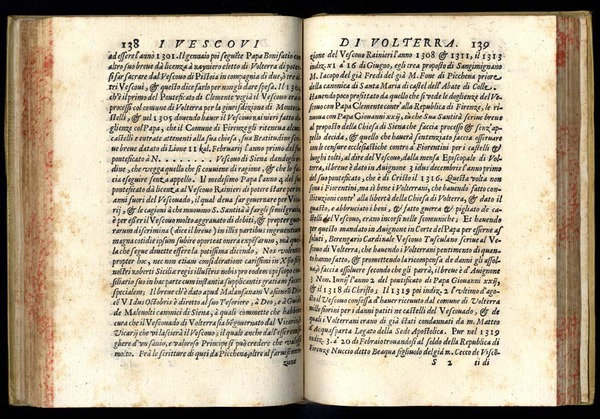 138 I VESCOVI
ad essere l'anno 1301. Il gennaio poi seguẽte Papa Bonifatio cõ
altro suo breue dà licẽza à Rayniero eletto di Volterra di poter
si far sacrare dal Vescouo di Pistoia in compagnia di due, ò tre al
tri Vescoui, & questo dice farlo per mẽ gli dare spesa. Il 130
che'l primo del Pontificato di Clemente pagò il Vescouo
processo col comune di Volterra per la giurisditione di Monte
castelli, & nel 1305 douendo hauer il Vescouo Rainieri fatto do
glienze col Papa, che il Comune di Firenze gli riteneua alcune
castelli e entrate attenenti alla sua chiesa, sua Beatitudine
un breue datato di Lione 11 kal. Februarij l'anno primo del suo
pontificato à N. Vescouo di Siena dandogli or
dine, che vegga quello che si conuiene di ragione, & che lo fac
cia eseguire senza appello. Il medesimo Papa l'anno 2 del po
tificato dà licenza al Vescouo Rainieri di potere stare per tre
anni fuori del Vescouado, il qual deua far gouernare per Vica
rij, & le cagioni che muouono S. Santità à fargli simil gratia,
è per eßer il Vescouo molto aggrauato di debiti, & propter guer
rarum discrimina (dice il breue) in illis partibus ingruentium
magna cotidie ipsum subire oporteat onera expensarum, ma quel
la che segue dimotte essere la potissima dicendo, Nos volentes
propter hoc, nec non etiam consideratione carissimi in Xp̃o filij
nostri roberti Siciliæ regis illustris nobis pro eodem episcopo con
siliario suo in hac parte cum instantia supplicantis gratiam facere
specialem. Il breue ch'è dato apud Malausanam Vasionen Dio
ces VI idus Octobris è diretto al suo Tesoriere, à Deo, & à Guido
de Maleuolti canonici di Siena, à quali commette che habbiano
cura che il Vescouado di Volterra sia bẽ gouernato dal Vicario,
Vicarij che vi lascierà il Vescouo; il quale anche dall'essere con
sigliere d'un sauio, e valoroso Principe si può credere che valesse
molto. Frà le scritture di quei da Picchena, oltre al farui si men
zione
DI VOLTERRA. 139
zione del Vescouo Rainieri l'anno 1308 & 1311, il 1313
indiz. XI à 16 di Giugno, egli crea proposto di Sangimignano
M. Iacopo del già Fredi del già M. Fone di Picchena priore
della canonica di Santa Maria di castel dell'Abate di Colle.
Hauendo poco profittato da quello che si vede le doglienze del Ve
scouo con Papa Clemente contr' alla Republica di Firenze, le ri
nuoua con Papa Giouanni xxij, sù che Sua Santità scriue breue
al proposto della Chiesa di Siena che faccia processo & senz'ap
pello decida, & quello che hauerà sentenziato faccia osseruare
con le censure ecclesiastiche contro à Fiorentini per i castelli &
luoghi tolti, al dire del Vescouo, dalla mensa Episcopale di Vol
terra, il breue è dato in Auignone 3 idus decembris l'anno primo
del suo pontificato, che è di Cristo il 1316. Questa volta non
sono i Fiorentini, ma si bene i Volterrani, che hauendo fatto con
stituzioni contr' alla libertà della Chiesa di Volterra, & dato il
guasto, e abbruciato i beni, & fatto guerra & pigliato de ca
stelli del Vescouo, erano incorsi nelle scomuniche; Et hauendo
per questo mandato in Auignone in Corte del Papa per esserne as
soluti, Berengario Cardinale Vescouo Tusculano scriue al Ve
scouo di Volterra, che hauendo i Volterrani pentimento di quan
to hanno fatto, & promettendo la ricompensa de danni gli assolua,
ò faccia assoluere secondo che gli parrà, il breue è d' Auignone
3 Non. Iunij l'anno 2 del pontificato di Papa Giouanni xxij,
& il 1318 di Christo. Il 1319 poi indiz. 2 l'vltimo d'ago
sto il Vescouo confessa d'hauer riceuuto dal comune di Volterra
mille fiorini per i danni patiti ne castelli del Vescouado, & de
quali i Volterrani erano di già stati condannati da m. Matteo
d'Acquasparta Legato della Sede Apostolica. Pur nel 1319
indiz. 3. à 20 di Febraio trouandosi al soldo della Republica di
Firenze Nuccio detto Beaqua figliuolo del già n. Cecco de Vesco
S 2 ti di